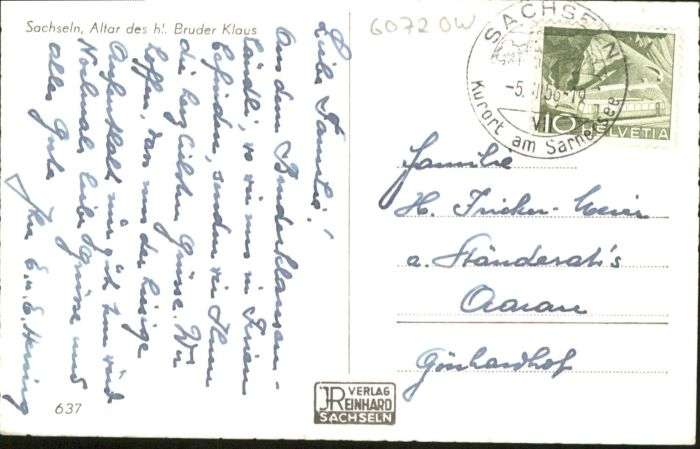 Sachseln, Altar des hl. Bruder Klaus
6072 OW
Liebe Familie!
Aus dem Bruderklausen-
ländli, wo wir uns in Ferien
befinden, senden wir Ihnen
die herzlichsten Grüsse. Wir
hoffen, dass uns der hiesige
Aufenthalt nur gut tun wird
Nochmals liebe Grüsse und
alles Gute
Ihre E. u. E.
SACHSELN
-5. 56-18
VII
Kurort am Sarnersee
10 HELVETIA
Familie
H. Fricker-Meier
a. Ständerat's
Aarau
Gönhardhof
637
JR VERLAG
REINHARD
SACHSELN